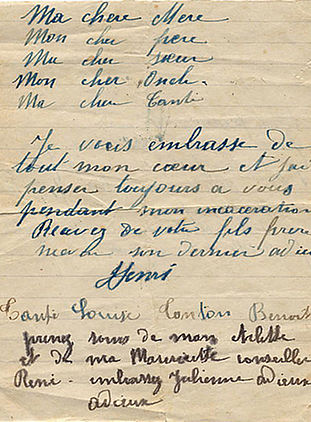 Ma chere Mere
Mon cher pere
Ma cher sœur
Mon cher Oncle
Ma cher Tante
Je vous embrasse de
tout mon cœur et j'ai
penser toujours a vous
pendant mon incaceration
Recevez de votre fils frere
neveu son dernier adieu
Henri
Tante Louise Tonton Benoit
prenez soins de mon
et de ma conseiller
René. embrassez Julienne adieux
adieux